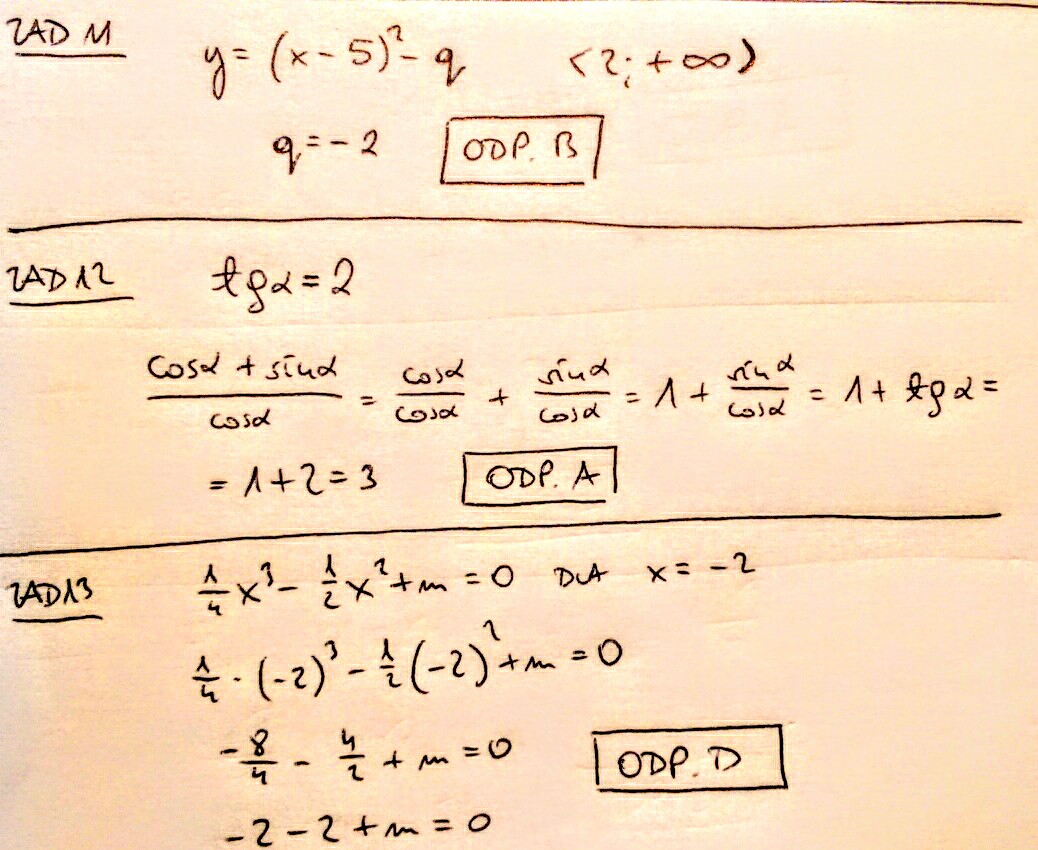 ZAD 11
y = (x - 5)² - q <2; +∞)
q = -2 ODP. B
ZAD 12 tgα = 2
(cosα + sinα)/cosα = cosα/cosα + sinα/cosα = 1 + sinα/cosα = 1 + tgα =
= 1+2 = 3 ODP. A
ZAD 13 1/4 x³ - 1/2 x² + m = 0 DLA x = -2
1/4 · (-2)³ - 1/2 (-2)² + m = 0
-8/4 - 4/2 + m = 0 ODP. D
-2 - 2 + m = 0